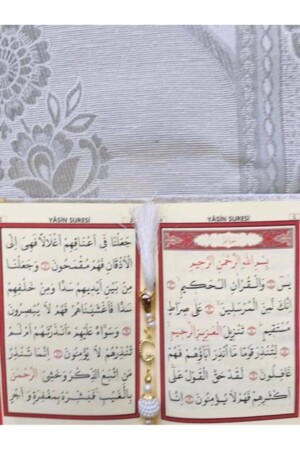 YÂSİN SURESİ
بِسْمِ اللهِ الرَّحْمٰنِ الرَّحِيمِ
يٰسٓ وَالْقُرْاٰنِ الْحَكِيمِ
اِنَّكَ لَمِنَ الْمُرْسَلِينَ عَلٰى صِرَاطٍ
مُسْتَقِيمٍ تَنْزِيلَ الْعَزِيزِ الرَّحِيمِ
لِتُنْذِرَ قَوْمًا مَا اُنْذِرَ اٰبَاؤُهُمْ فَهُمْ
غَافِلُونَ لَقَدْ حَقَّ الْقَوْلُ عَلٰى
اَكْثَرِهِمْ فَهُمْ لَا يُؤْمِنُونَ اِنَّا
YÂSİN SURESİ
جَعَلْنَا فِى اَعْنَاقِهِمْ اَغْلَالًا فَهِىَ اِلَى
الْاَذْقَانِ فَهُمْ مُقْمَحُونَ وَجَعَلْنَا
مِنْ بَيْنِ اَيْدِيهِمْ سَدًّا وَمِنْ خَلْفِهِمْ
سَدًّا فَاَغْشَيْنَاهُمْ فَهُمْ لَا يُبْصِرُونَ
وَسَوَاءٌ عَلَيْهِمْ ءَاَنْذَرْتَهُمْ اَمْ لَمْ
تُنْذِرْهُمْ لَا يُؤْمِنُونَ اِنَّمَا تُنْذِرُ
مَنِ اتَّبَعَ الذِّكْرَ وَخَشِىَ الرَّحْمٰنَ
بِالْغَيْبِ فَبَشِّرْهُ بِمَغْفِرَةٍ وَاَجْرٍ